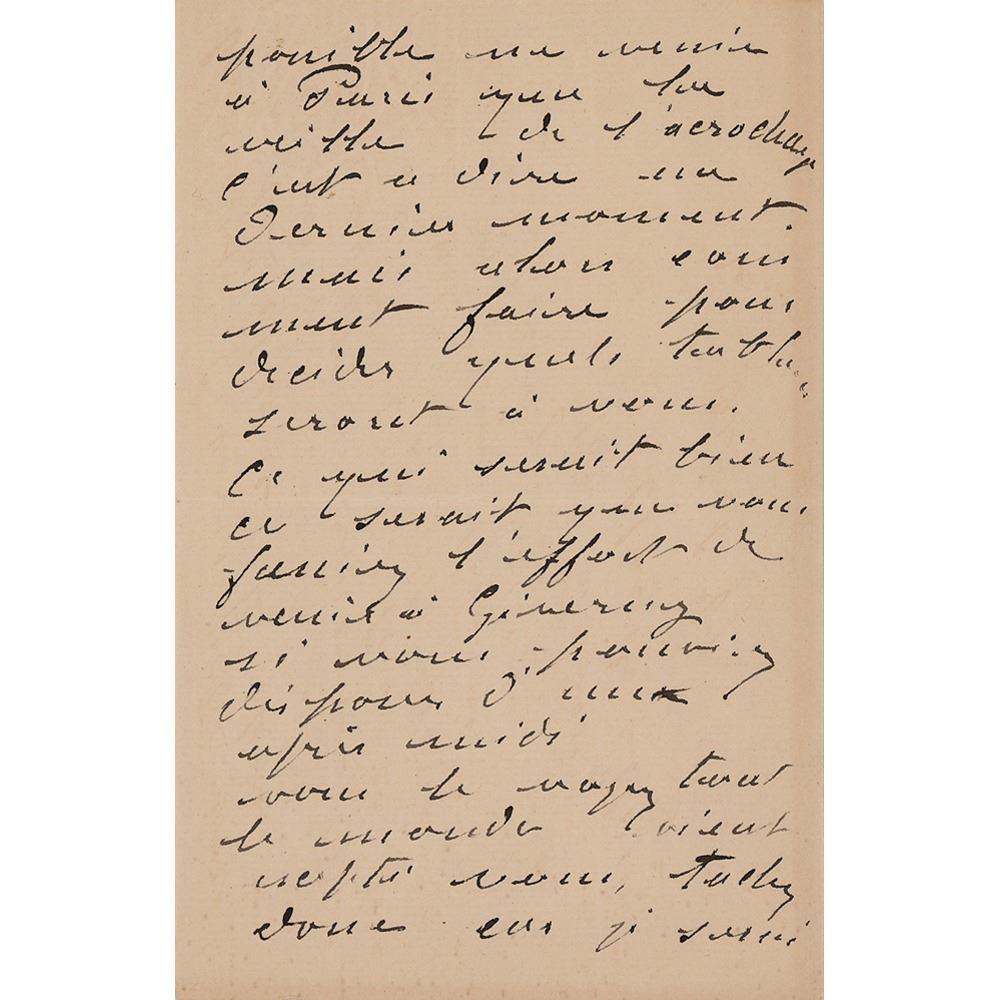 possible ne venir
à Paris que la
veille de l'acrochage
c'est a dire au
dernier moment.
mais alors com
ment faire pour
decider quels tableaux
seront à vous.
Ce qui serait bien
ce serait que vous
fassiez l'effort de
venir à Giverny
si vous pouviez
disposer d'une
après midi
vous le voyez tout
le monde vient
excepté vous, tachez
donc car je serai